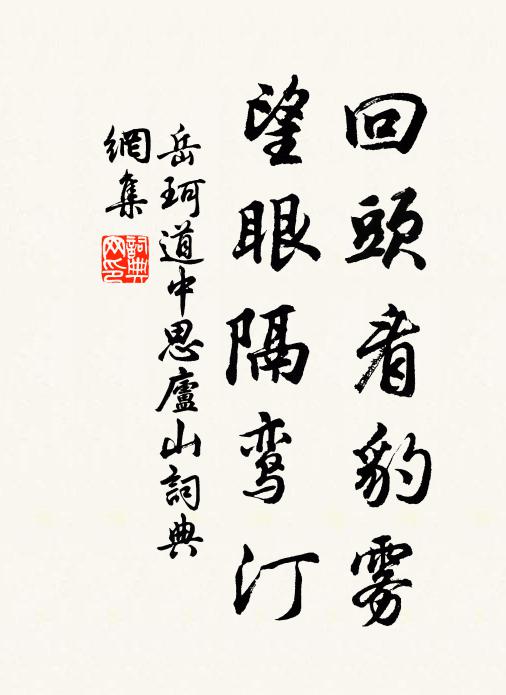 回頭看豹雾
望眼隔鸾汀
岳珂道中思廬山詞典
網集
詞典网印